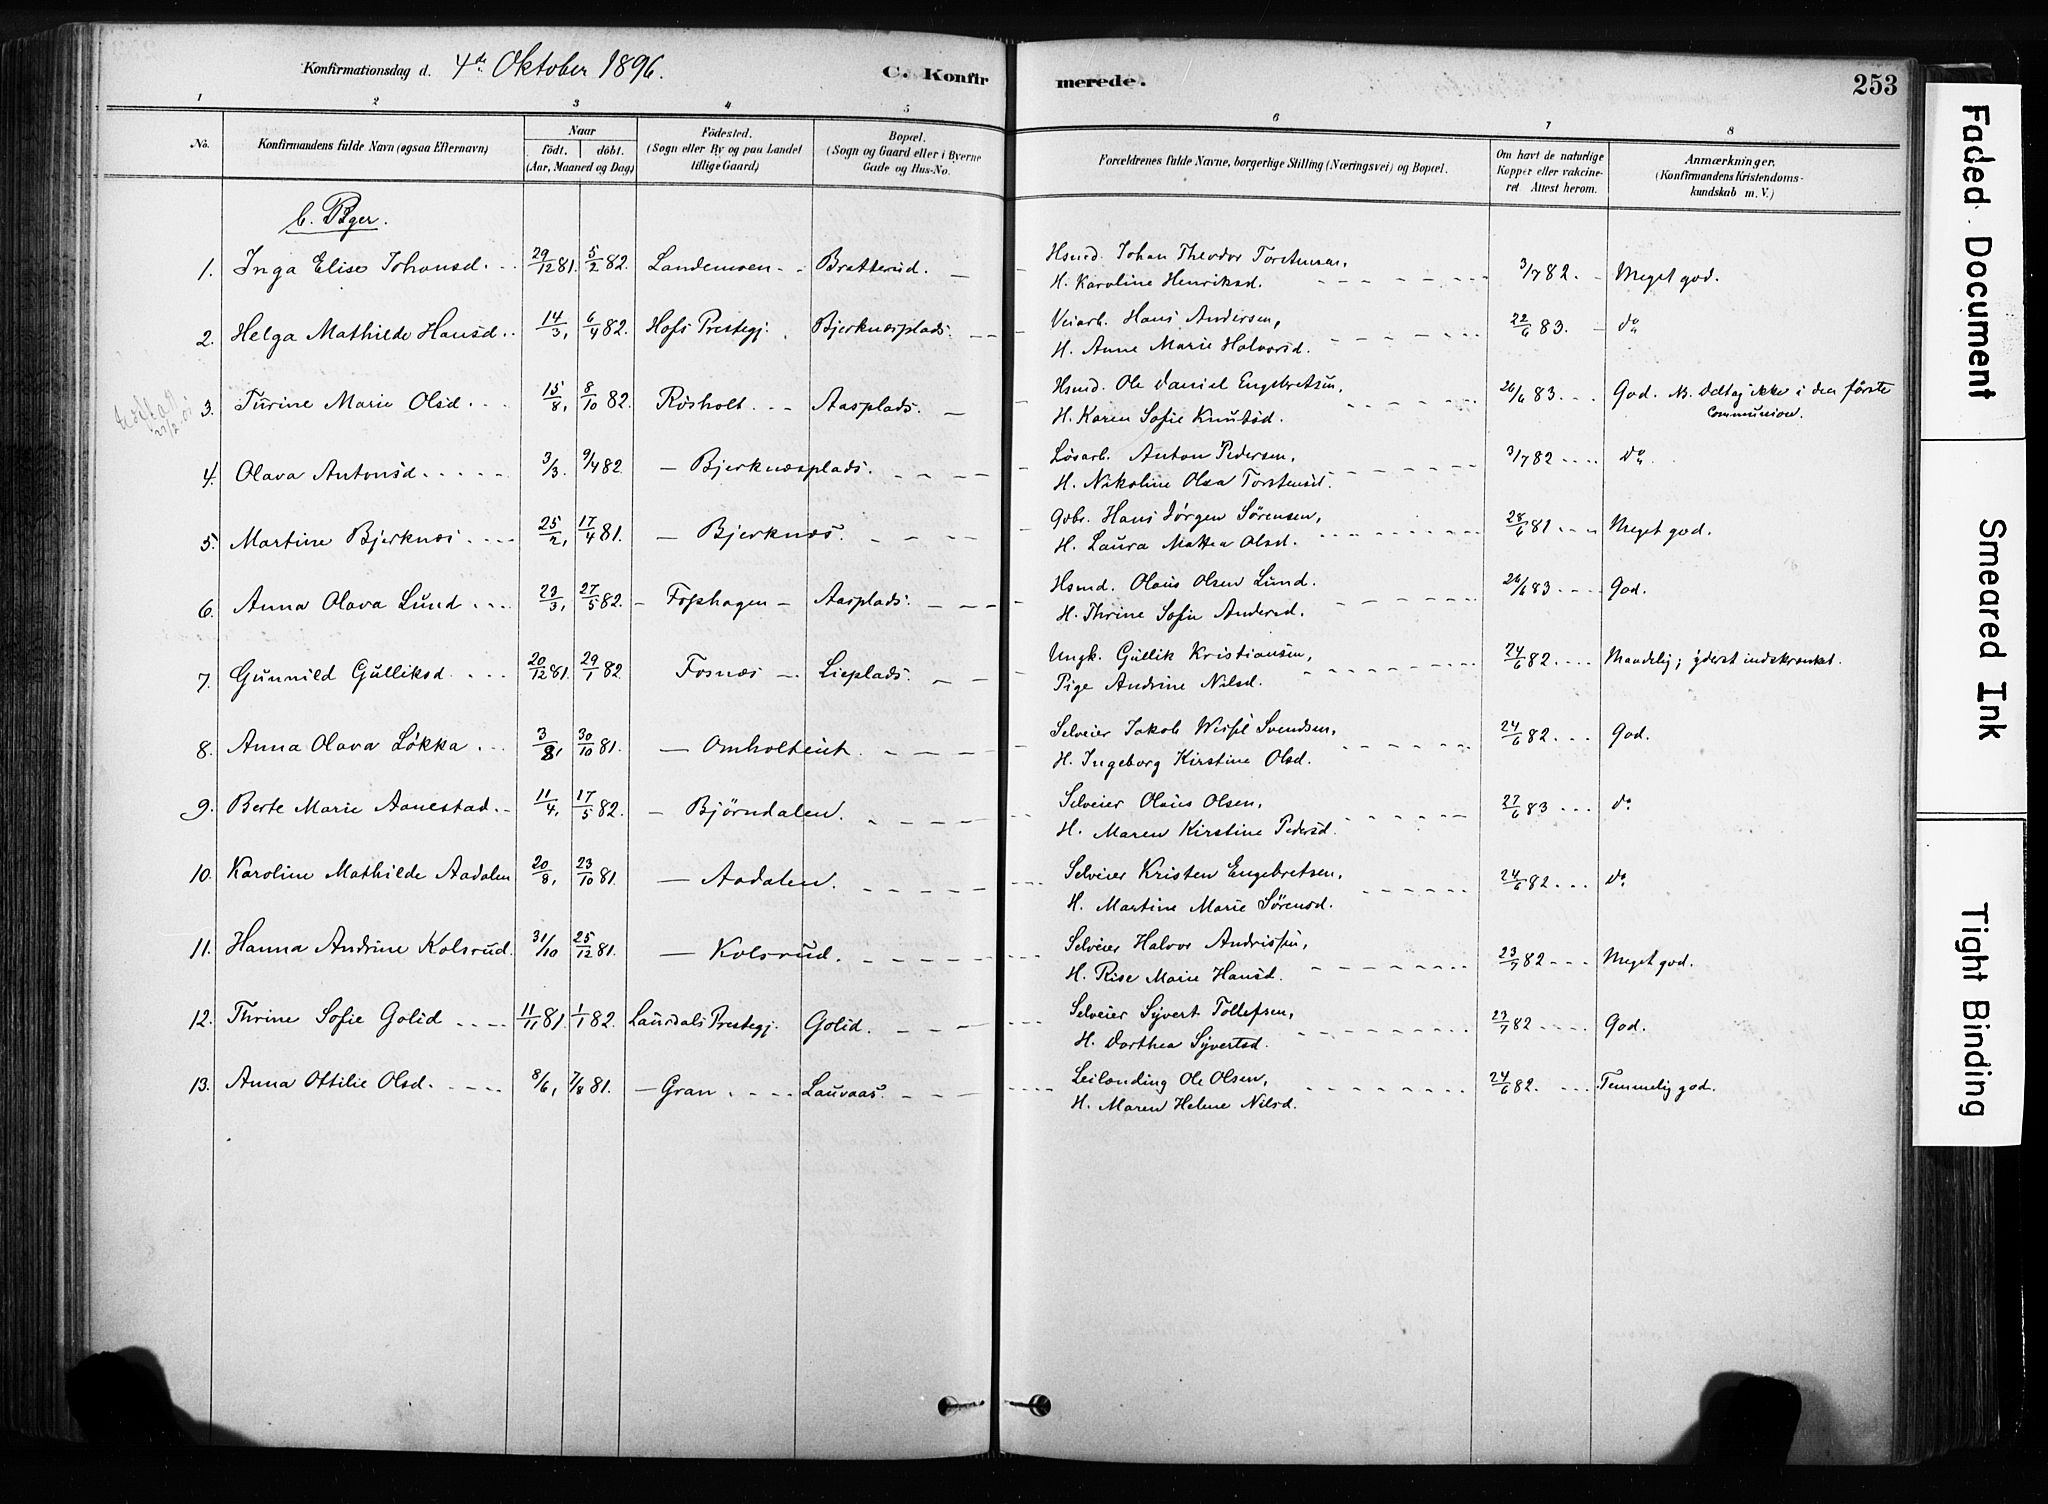 Konfirmationsdag d. 4de Oktober 1896. C. Konfir merede. 253
1 2 3 4 5 6 7 8
No. Konfirmandens fulde Navn (ogsaa Efternavn) Naar födt. döbt. (Aar, Maaned og Dag) Födested. (Sogn eller By og paa Landet tillige Gaard) Bopæl. (Sogn og Gaard eller i Byerne Gade og Hus-No. Forældrenes fulde Navne, borgerlige Stilling (Næringsvei) og Bopæl. Om havt de naturlige Kopper eller vakcineret. Attest herom. Anmærkninger. (Konfirmandens Kristendomskundskab m. V.)
b. Piger.
1. Inga Elise Johansd. 29/12 81. 5/2 82. Landemoen Bratterud. Hsmd. Johan Theodor Torstensen, 3/7 82. Meget god.
H. Karoline Henriksd.
2. Helga Mathilde Hansd. 14/3, 6/4 82. Hofs Prestegj. Bjerknæsplads. Veiarb. Hans Andersen, 22/6 83. do
H. Anne Marie Halvorsd.
3. Turine Marie Olsd. 15/8, 8/10 82. Rösholt. Aasplads. Hsmd. Ole Daniel Engebretsen, 26/6 83. God. NB. Deltog ikke i den förste
H. Karen Sofie Knutsd. Communion.
4. Olava Antonsd. 3/3. 9/4 82 — Bjerknæsplads. Løsarb. Anton Pedersen, 3/7 82 do
H. Nikoline Olea Torstensd.
5. Martine Bjerknæs. 25/2, 17/4 81. — Bjerknæs. Gbr. Hans Jörgen Sörensen, 28/6 81 Meget god.
H. Laura Mathea Olsd.
6. Anna Olava Lund 23/3, 27/5 82. Fosshagen Aasplads. Hsmd. Olaus Olsen Lund. 26/6 83 God.
H. Thrine Sofie Andersd.
7. Gunnild Gulliksd. 20/12 81. 29/1 82 Fosnæs Lieplads. Ungk. Gullik Kristiansen, 24/6 82. Maadelig; yderst indskrænket.
Pige Andrine Nilsd.
8. Anna Olava Lökka. 3/8, 30/10 81. — Omholteiet. Selveier Jakob Wessel Svendsen, 24/6 82. God.
H. Ingeborg Kirstine Olsd.
9. Berte Marie Aanestad. 11/4, 17/5 82. — Björndalen. Selveier Olaus Olsen, 27/6 83 do
H. Maren Kirstine Pedersd.
10. Karoline Mathilde Aadalen 20/8, 23/10 81. — Aadalen. Selveier Kristen Engebretsen, 24/6 82 do
H. Martine Marie Sörensd.
11. Hanna Andrine Kolsrud. 31/10 25/12 81. — Kolsrud. Selveier Halvor Andrissen, 23/7 82 Meget god.
H. Rise Marie Hansd.
12. Thrine Sofie Golid 11/11 81. 1/1 82. Laurdals Prestegj. Golid. Selveier Syvert Tollefsen, 23/7 82 God.
H. Dorthea Syvertsd.
13. Anna Ottilie Olsd. 8/6, 7/8 81. — Gran. Lauvaas. Leilænding Ole Olsen, 24/6 82. Temmelig god.
H. Maren Helene Nilsd.
Faded Document
Smeared Ink
Tight Binding